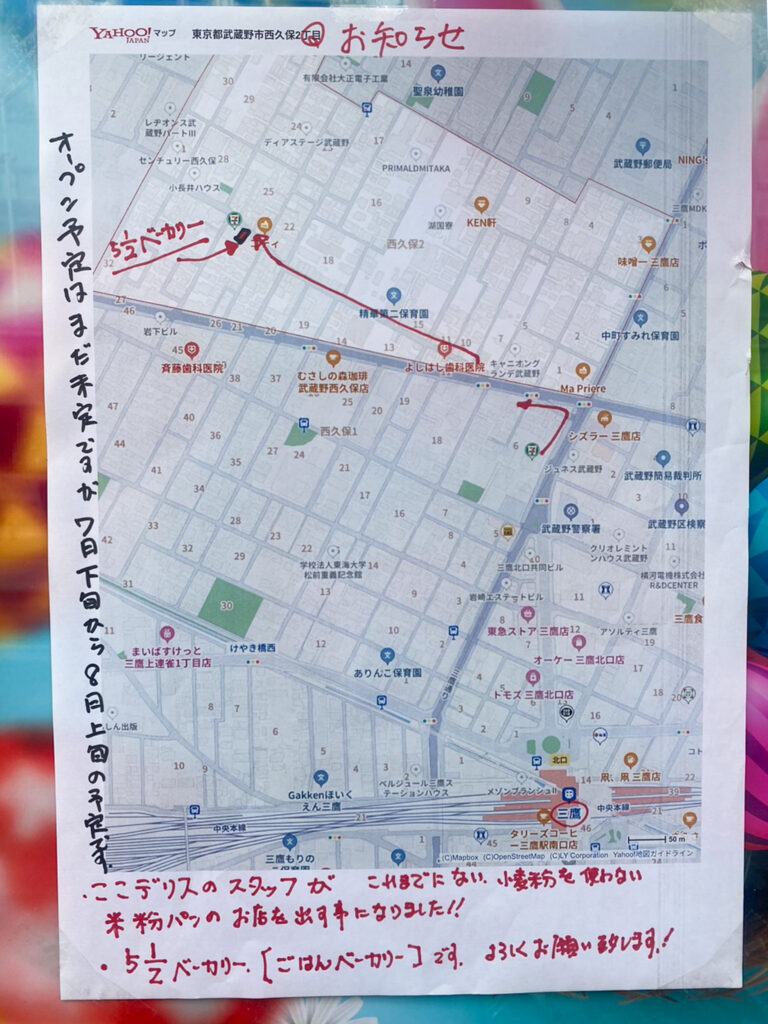 YAHOO! JAPAN マップ 東京都武蔵野市西久保2丁目 お知らせ
オープン予定はまだ未定ですが7月下旬から8月上旬の予定です.
リージェント
有限会社大正電子工業
聖泉幼稚園
レヂオンス武蔵野パートIII
ディアステージ武蔵野
センチュリー西久保
小長井ハウス
PRIMALDMITAKA
武蔵野郵便局
NING's
三鷹MDK
KEN軒
湖国寮
西久保2
5½ベーカリー
味噌一 三鷹店
精華第二保育園
中町すみれ保育園
岩下ビル
斉藤歯科医院
むさしの森珈琲
武蔵野西久保店
よしはし歯科医院
キャニオング
ランデ武蔵野
Ma Priere
シズラー 三鷹店
西久保1
ジュネス武蔵野
武蔵野簡易裁判所
武蔵野警察署
武蔵野区検察
クリオレミント
ンハウス武蔵野
学校法人東海大学
松前重義記念館
三鷹北口共同ビル
横河電機株式会社
R&DCENTER
岩崎エステートビル
東急ストア 三鷹店
アソルティ三鷹
三鷹食
まいばすけっと
三鷹上連雀1丁目店
けやき橋西
オーケー 三鷹北口店
ありんこ保育園
三鷹通り
トモズ 三鷹北口店
しん出版
北口
凪、凪 三鷹店
Gakkenほいく
えん三鷹
ベルジュール三鷹ス
テーションハウス
メゾンブランシュII
三鷹
中央本線
中央本線
タリーズコーヒ
ー三鷹駅南口店
三鷹もりの
50 m
(C)Mapbox (C)OpenStreetMap (C)LY Corporation Yahoo!地図ガイドライン
・ここデリスのスタッフが これまでにない、小麦粉を使わない
米粉パンのお店を出す事になりました!!
・5½ベーカリー.［ごはんベーカリー］です. よろしくお願い致します!